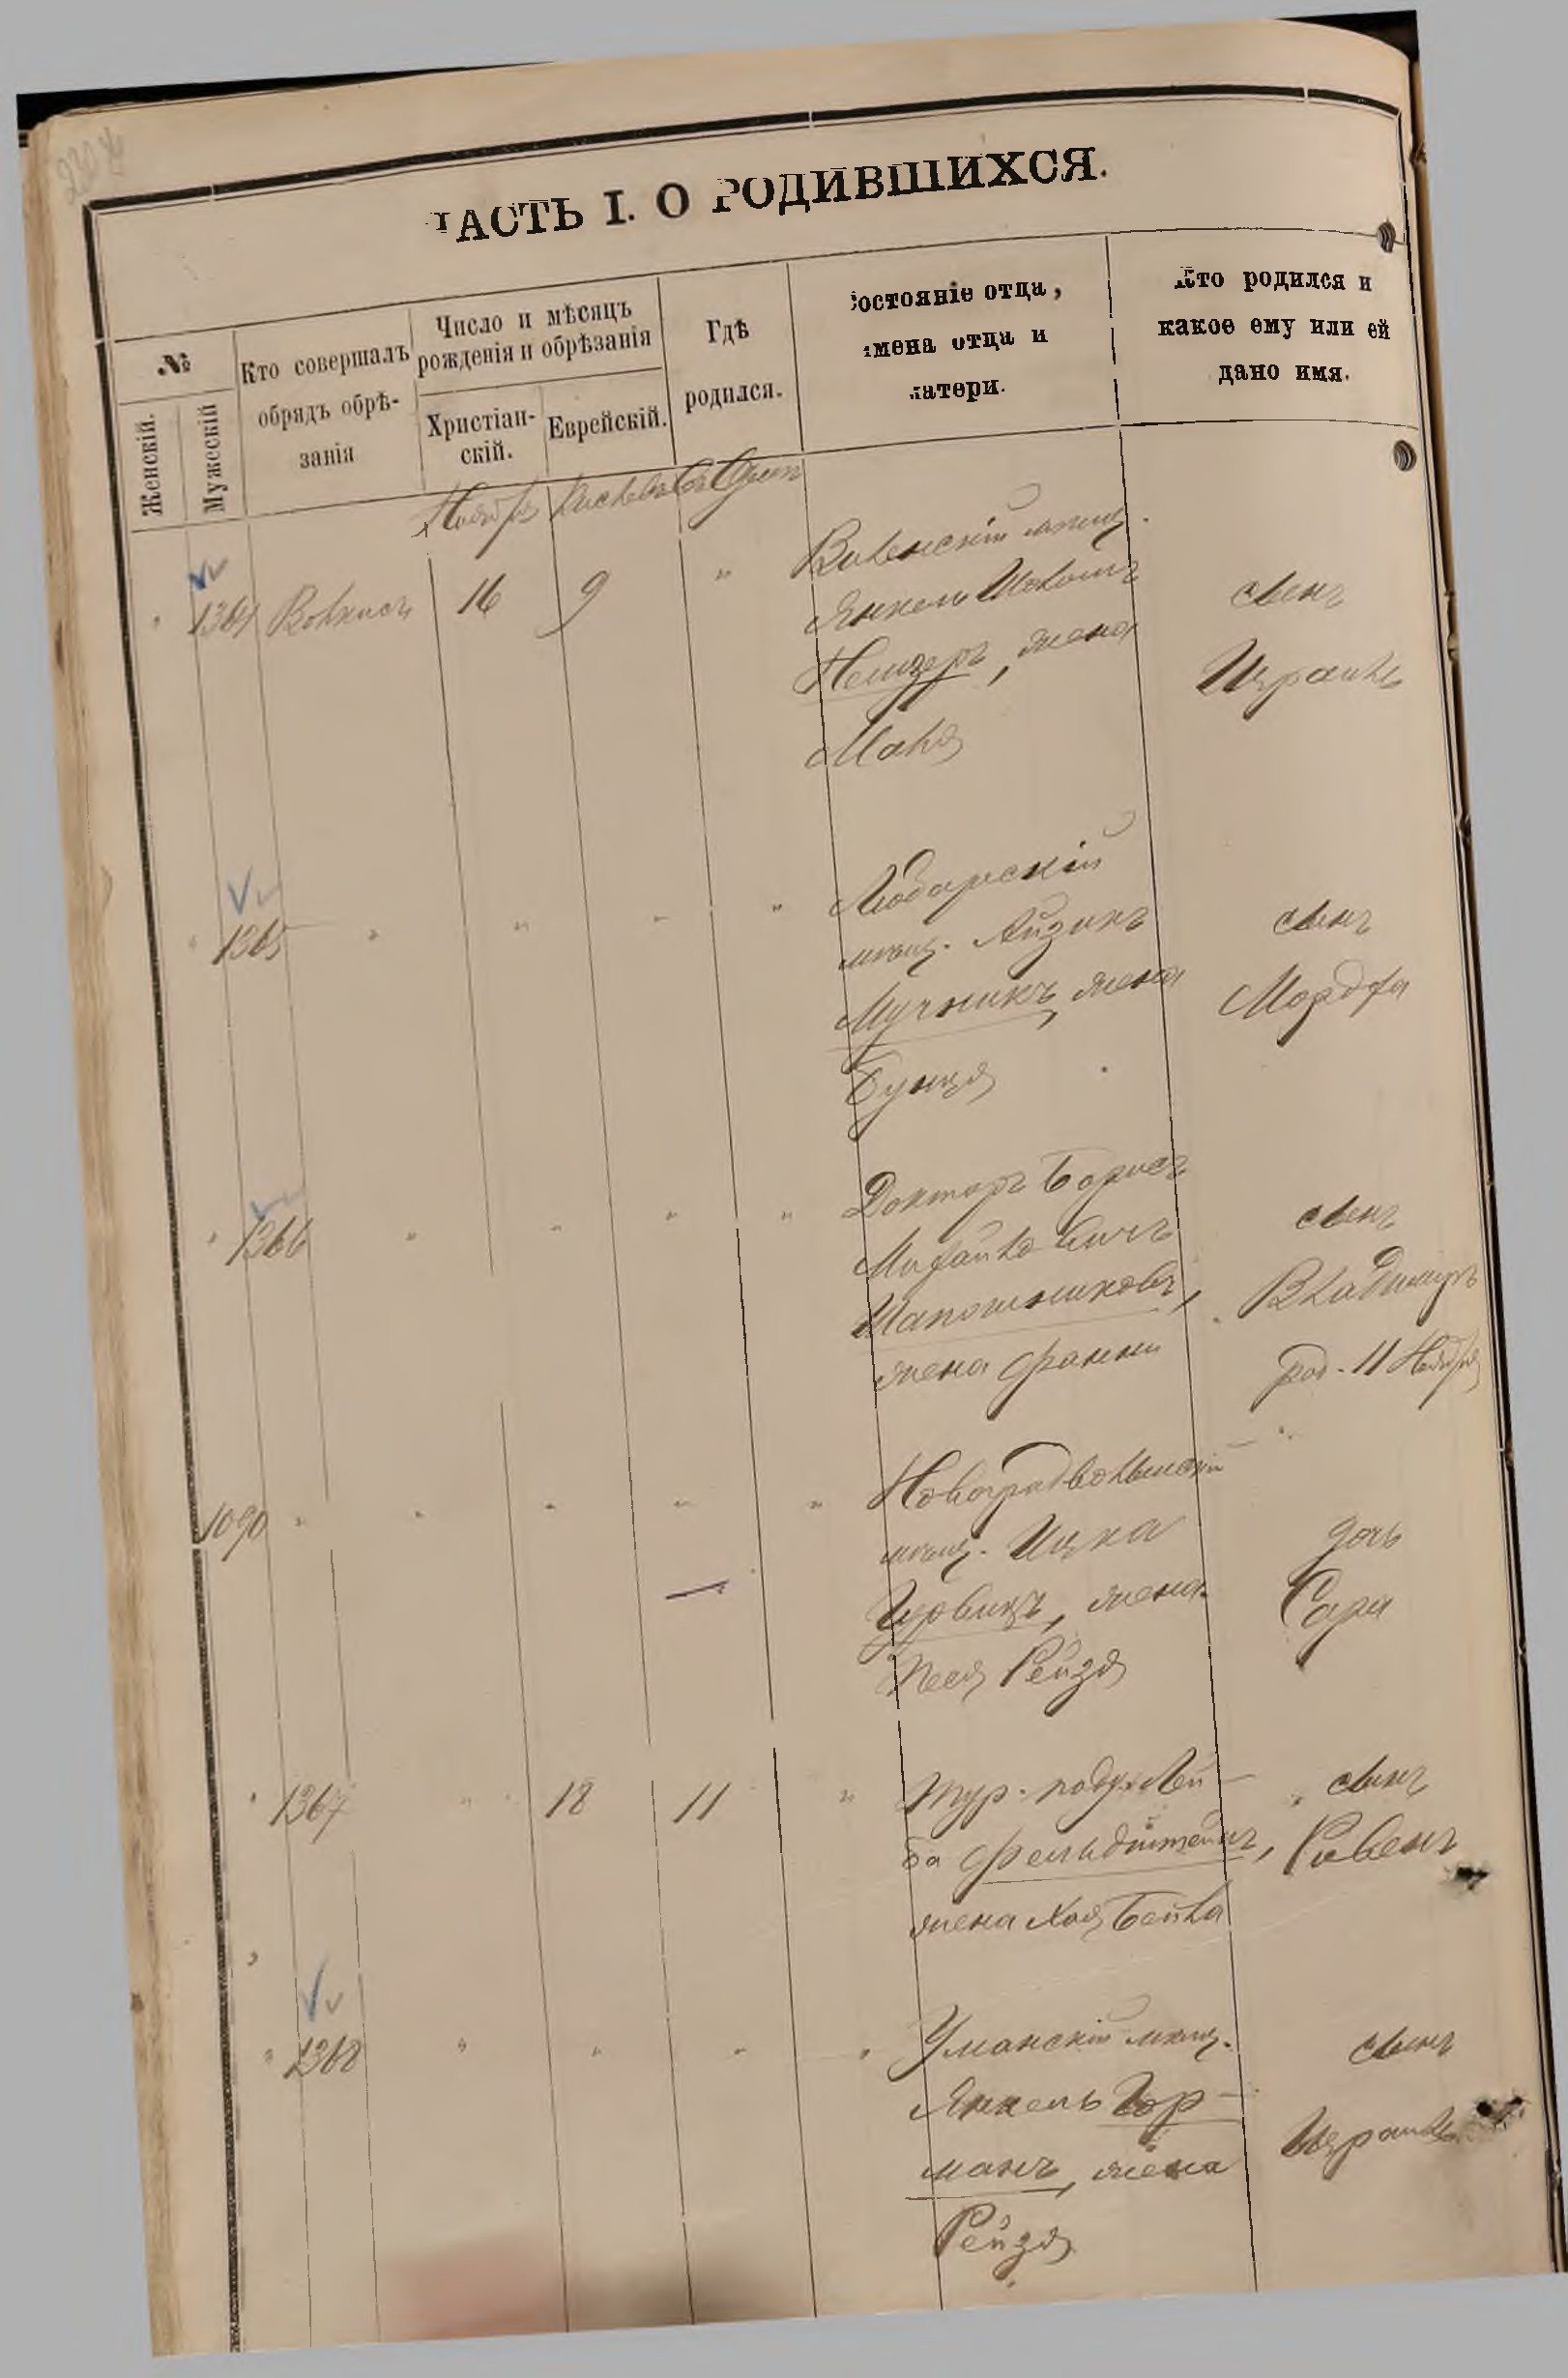 ЧАСТЬ I. О РОДИВШИХСЯ.
№
Женскій.
Мужескій
Кто совершалъ
обрядъ обрѣ-
занія
Число и мѣсяцъ
рожденія и обрѣзанія
Христіан-
скій.
Еврейскій.
Гдѣ
родился.
Состояніе отца,
имена отца и
матери.
Кто родился и
какое ему или ей
дано имя.
Ноябрь Кислевъ Въ Одессѣ
" 1364 16 9 "
Виленскій мѣщ.
Янкель
жена
Маля
сынъ
Израиль
" 1365 " " " "
Любарскій
мѣщ. Айзикъ
Мучникъ, жена
Бунця
сынъ
Мордха
" 1366 " " " "
Докторъ Борисъ
Михайловичъ
Шапошниковъ,
жена Фанни
сынъ
Владимиръ
род. 11 Ноября
1090 " " " " "
Новоградволынскій
мѣщ. Ицка
Гурвицъ, жена
Песя Рейзя
дочь
Сара
" 1367 " 18 11 "
тур. подд. Лей-
ба Фельдштейнъ,
жена Хая Бейла
сынъ
Рувенъ
" 1368 " " " "
Уманскій мѣщ.
Янкель Гор-
манъ, жена
Рейзя
сынъ
Израиль